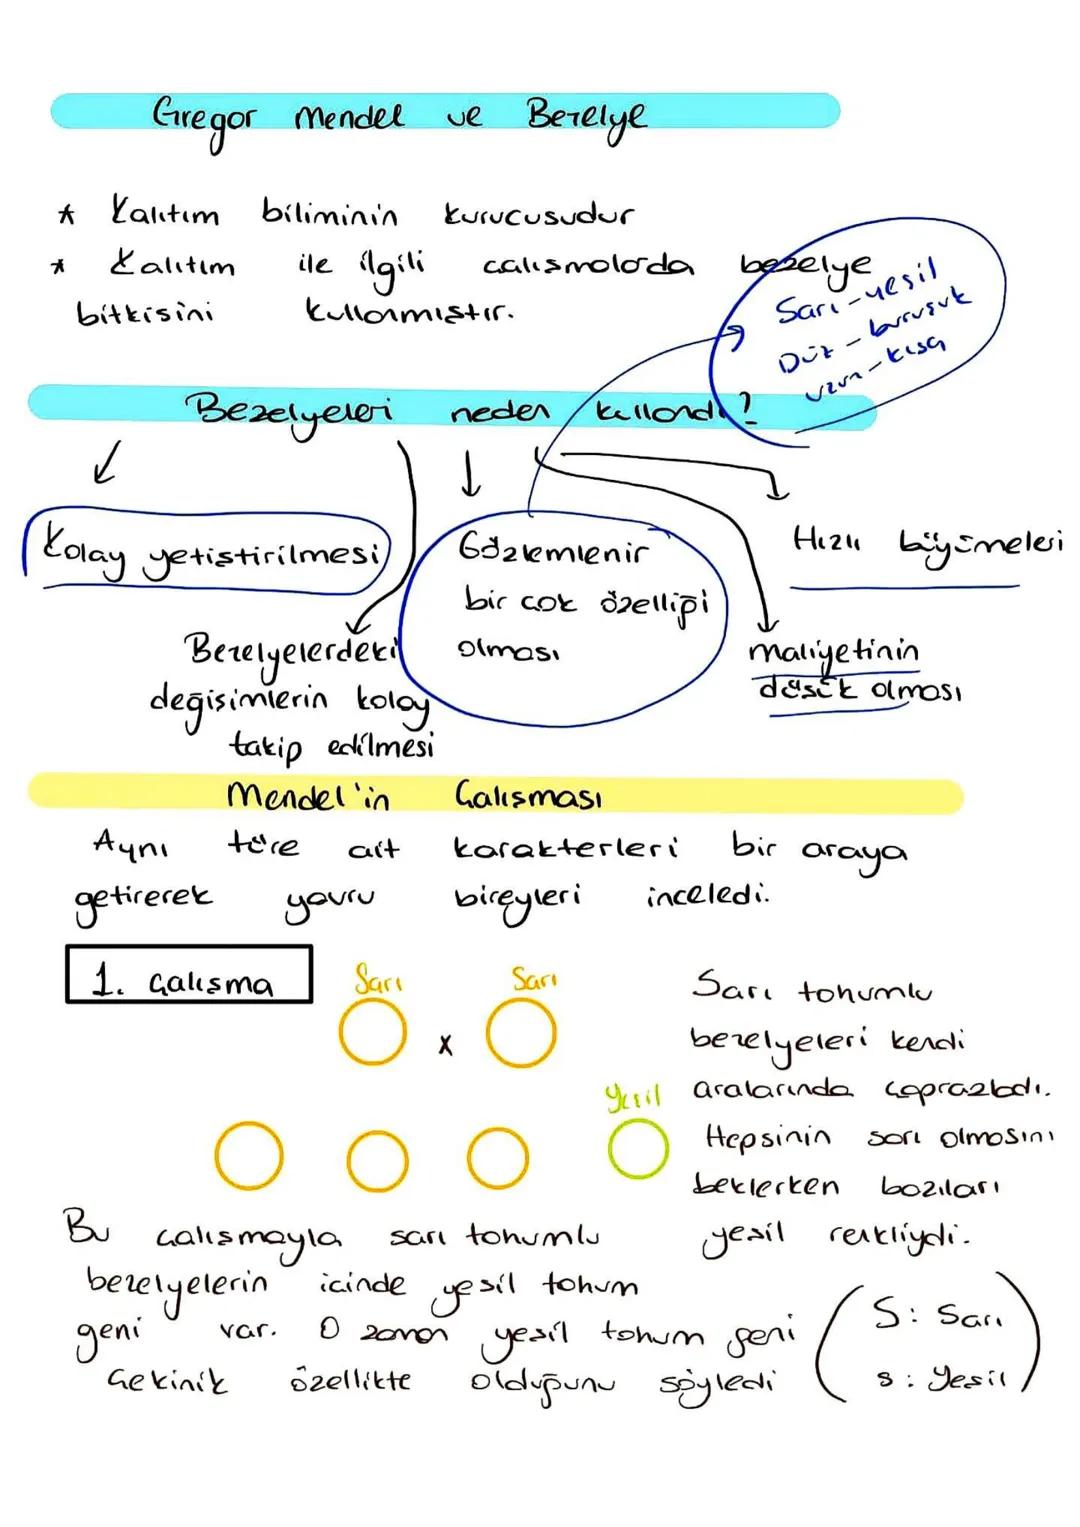 Gregor Mendel ve Bezelye
* Kalıtım biliminin kurucusudur
* Kalıtım ile ilgili calışmalarda bezelye
bitkisini kullanmıştır.
Sarı-yeşil
Düz - buruşuk
uzun-kısa
Bezelyeleri neden kullandı?
Kolay yetiştirilmesi
Gözlemlenir
bir cok özelliği
olması
Hızlı büyümeleri
Bezelyelerdeki
değişimlerin kolay
takip edilmesi
maliyetinin
düşük olması
Mendel'in Çalışması
Aynı türe ait karakterleri bir araya
getirerek yavru bireyleri inceledi.
1. çalışma
Sarı Sarı
x
Yeşil
Sarı tohumlu
bezelyeleri kendi
aralarında çaprazladı.
Hepsinin sarı olmasını
beklerken bazıları
yeşil renkliydi.
Bu çalışmayla sarı tohumlu
bezelyelerin icinde yeşil tohum
geni var. O zaman yeşil tohum geni
Çekinik özellikte olduğunu söyledi
S: Sarı
s: Yeşil